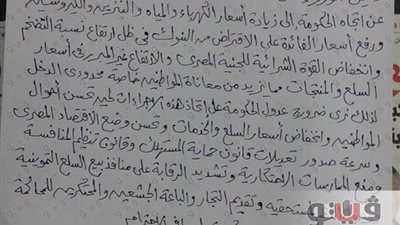 عن اتجاه الحكومة إلى زيادة أسعار الكهرباء والمياه والبنزين والكروت
ورفع أسعار الفائدة على الاقتراض من البنوك في ظل ارتفاع نسبة التضخم
وانخفاض القوة الشرائية للجنيه المصرى والارتفاع غير المبرر فى أسعار
السلع والمنتجات مما يزيد من معاناة المواطنين خاصة محدودى الدخل
لذلك نرى ضرورة عدول الحكومة عن اتخاذ هذه الإجراءات لحين تحسن أحوال
المواطنين وانخفاض أسعار السلع والخدمات وتحسن وضع الاقتصاد المصرى
وسرعة صدور تعديلات قانون حماية المستهلك وقانون تنظيم المنافسة
ومنع الممارسات الاحتكارية وتشديد الرقابة على منافذ بيع السلع التموينية
لمستحقيه وتقديم التجار والباعة الجشعين والمحتكرين للمحاكمة
فيتو